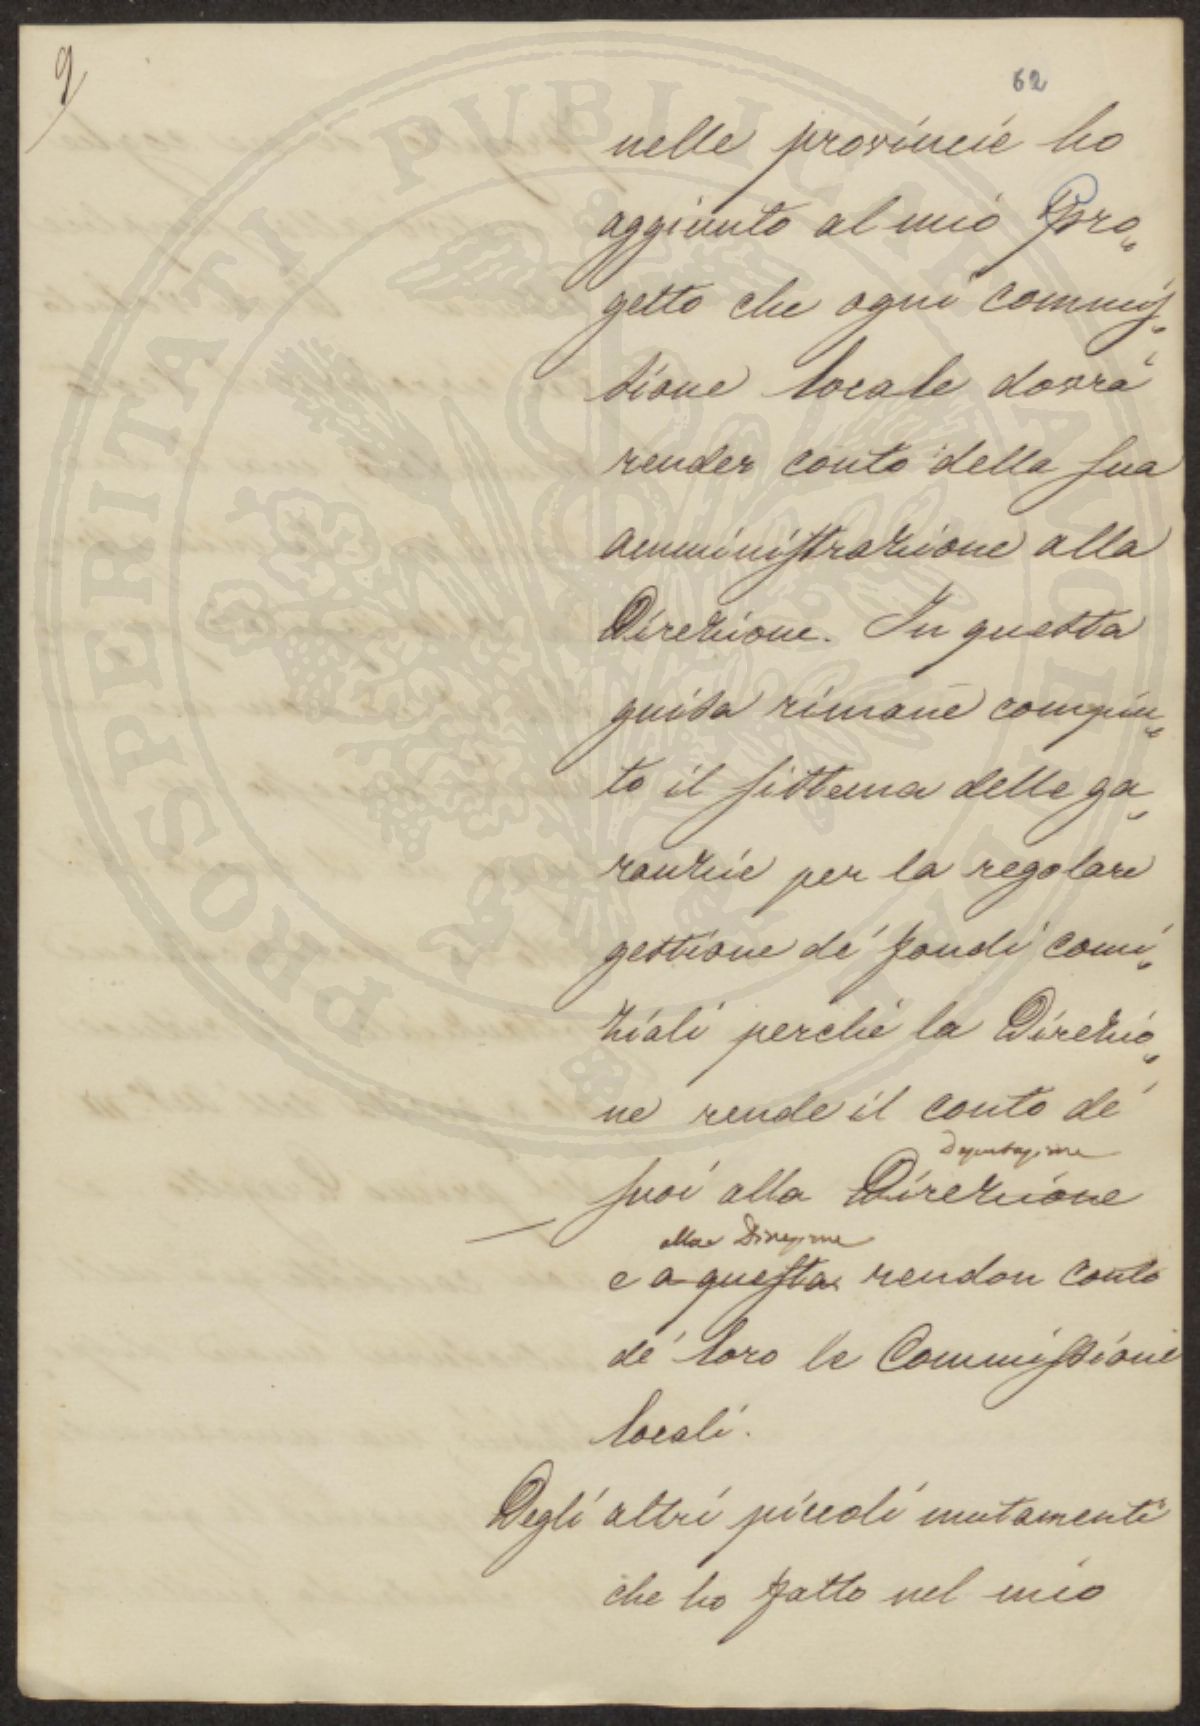 9
62
nelle provincie ho
aggiunto al mio Pro„
getto che ogni commis„
sione locale dovrà
render conto della sua
amministrazione alla
Direzione. In questa
guisa rimane compiu„
to il sistema delle ga„
ranzie per la regolare
gestione de' fondi comi„
ziali perchè la Direzio„
ne rende il conto de'
Deputazione
suoi alla Direzione
alla Direzione
e a questa rendon conto
de' loro le Commissioni
locali.
Degli altri piccoli mutamenti
che ho fatto nel mio
PROSPERITATI PVBLICAE AVGENDAE